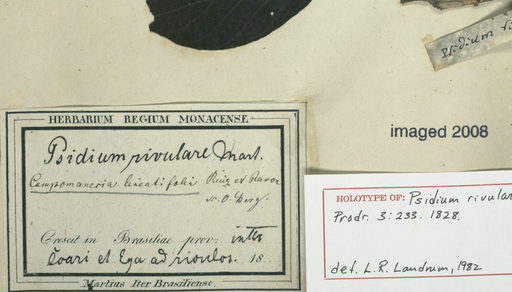 Psidium
imaged 2008
HERBARIUM REGIUM MONACENSE
Psidium rivulare Mart.
Campomanesia lineatifolia Ruiz et Pavon
Crescit in Brasiliae prov: inter
Coari et Ega ad rivulos. 18
Martius Iter Brasiliense.
HOLOTYPE OF: Psidium rivular
Prodr. 3: 233. 1828.
det. L.R. Landrum, 1982